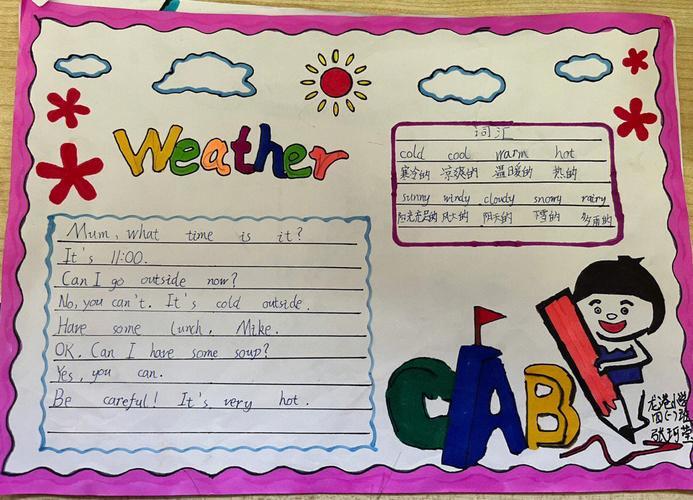 Weather
词汇
cold cool warm hot
寒冷的 凉爽的 温暖的 热的
sunny windy cloudy snowy rainy
阳光充足的 风大的 阴天的 下雪的 多雨的
Mum, what time is it?
It's 11:00.
Can I go outside now?
No, you can't. It's cold outside.
Have some lunch, Mike.
OK. Can I have some soup?
Yes, you can.
Be careful! It's very hot.
CAB
龙港小学
四(一)班